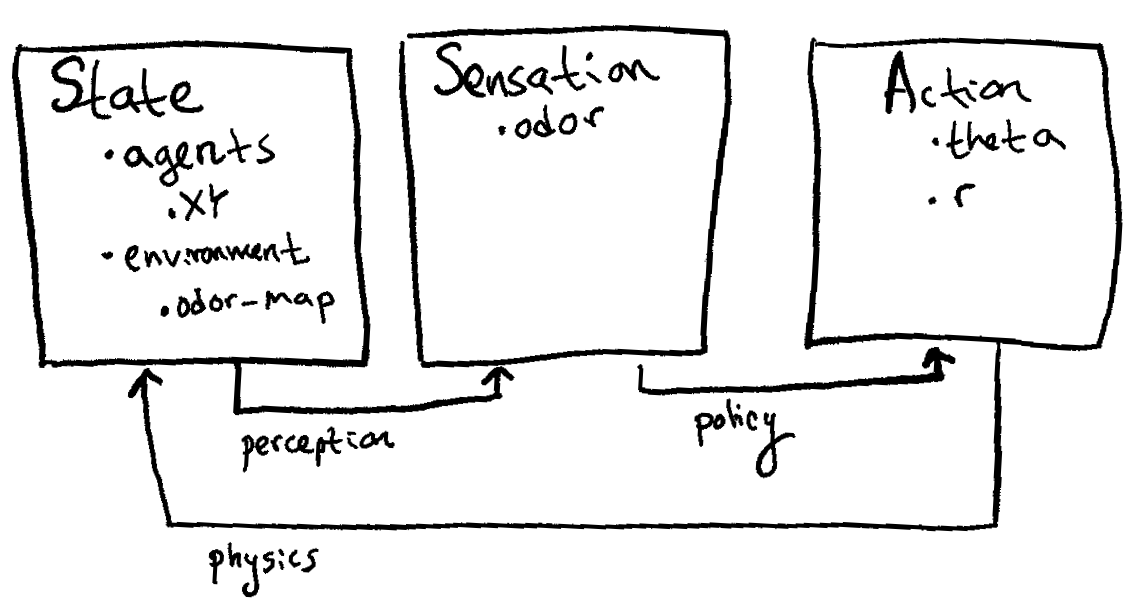 State
• agents
• XY
• environment
• odor-map
Sensation
• odor
Action
• theta
• r
perception
policy
physics